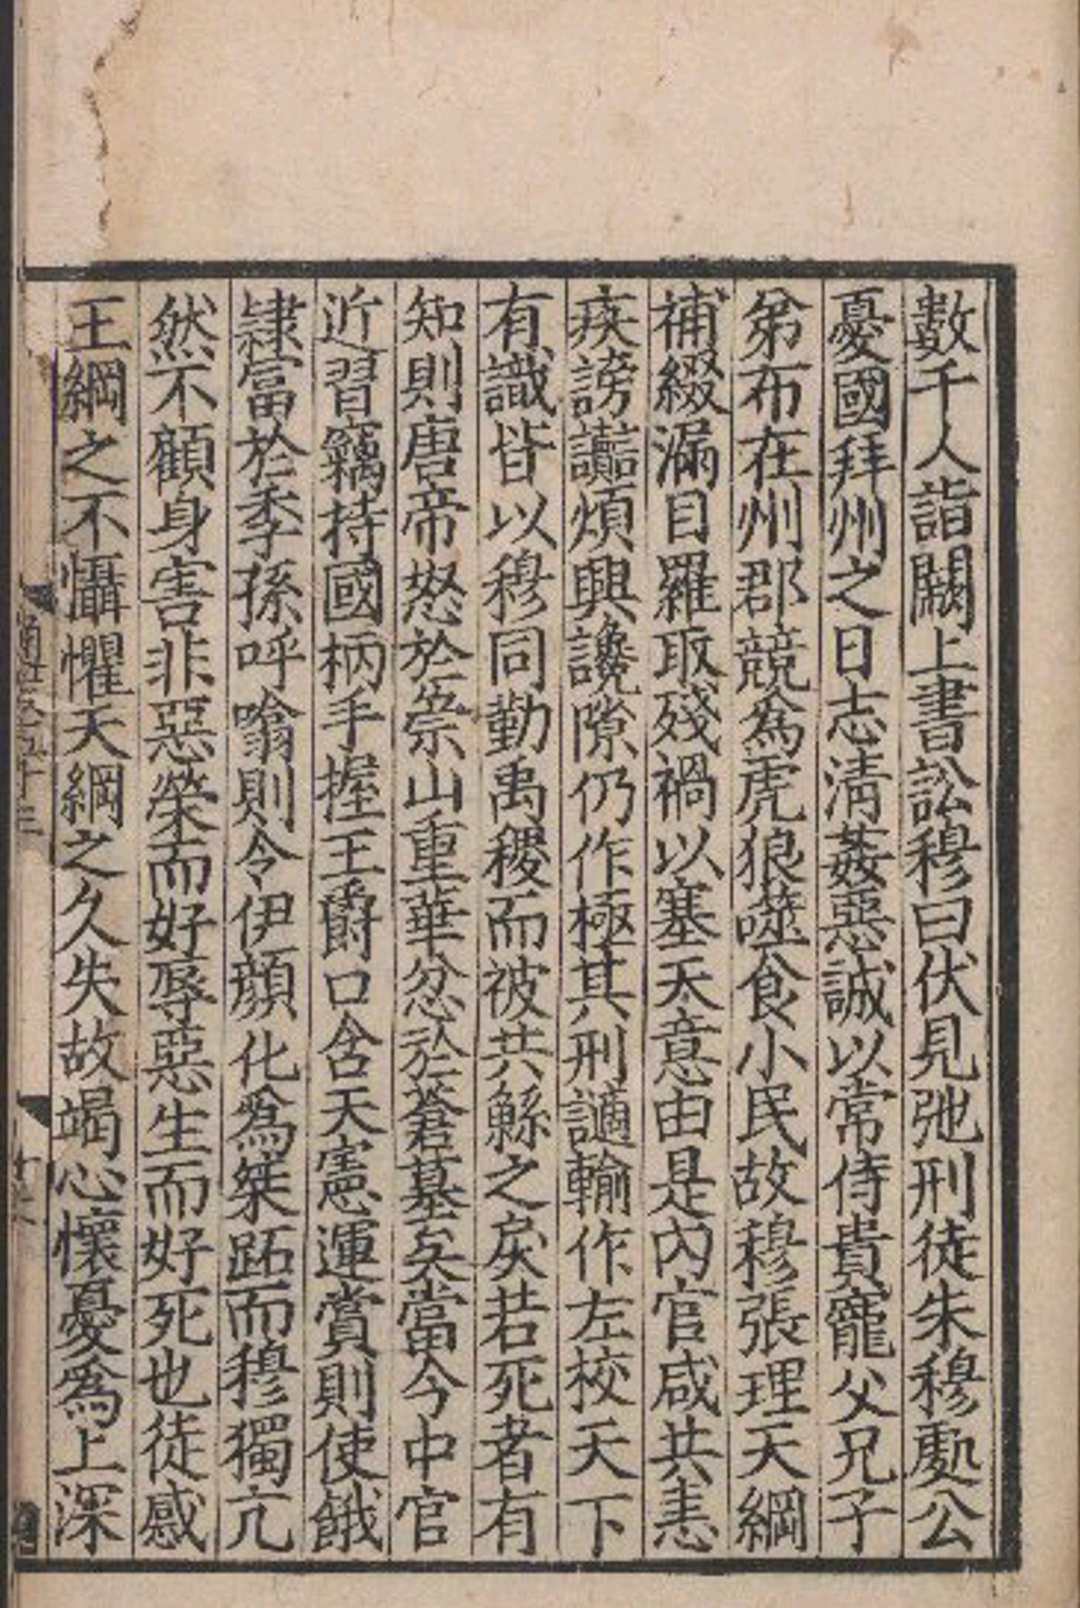 數千人詣闕上書訟穆曰伏見弛刑徒朱穆處公
憂國拜州之日志清姦惡誠以常侍貴寵父兄子
弟布在州郡競為虎狼噬食小民故穆張理天綱
補綴漏目羅取殘禍以塞天意由是內官咸共恚
疾謗讟煩興讒隙仍作極其刑讁輸作左校天下
有識皆以穆同勤禹稷而被共鯀之戾若死者有
知則唐帝怒於崇山重華忿於蒼墓矣當今中官
近習竊持國柄手握王爵口含天憲運賞則使餓
隸富於季孫呼噏則令伊顏化為桀跖而穆獨亢
然不顧身害非惡榮而好辱惡生而好死也徒感
王綱之不懾懼天綱之久失故竭心懷憂為上深